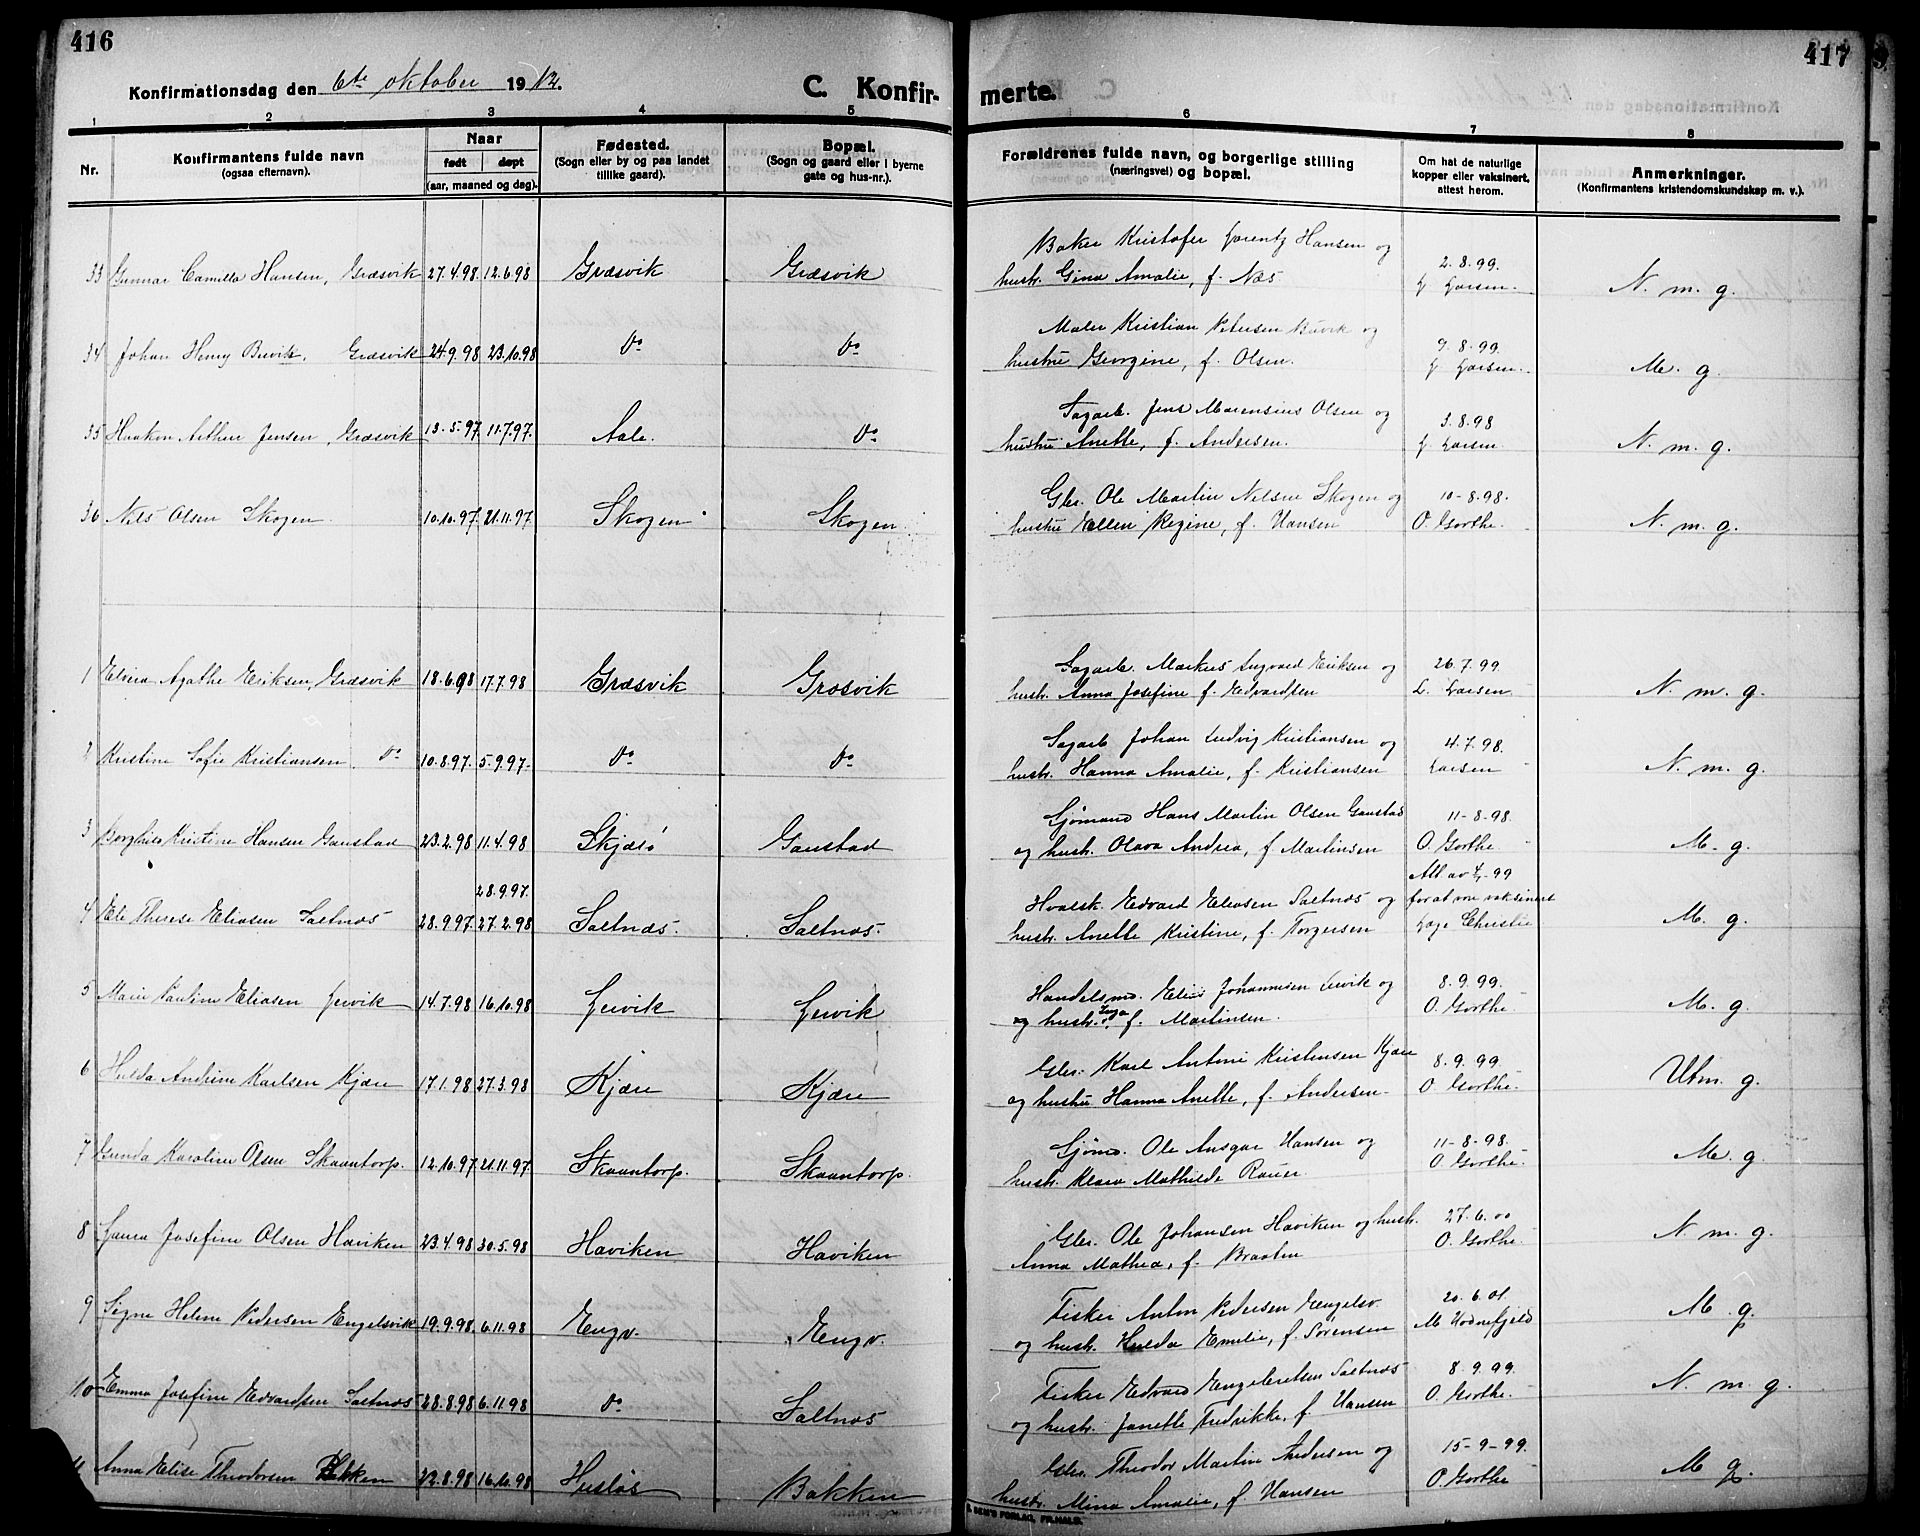 416
417
Konfirmationsdag den 6te oktober 1912.
C. Konfir-
merte.
1 2 3 4 5 6 7 8
Nr.
Konfirmantens fulde navn
(ogsaa efternavn).
Naar
født døpt
(aar, maaned og dag).
Fødested.
(Sogn eller by og paa landet
tillike gaard).
Bopæl.
(Sogn og gaard eller i byerne
gate og hus-nr.).
Forældrenes fulde navn, og borgerlige stilling
(næringsvei) og bopæl.
Om hat de naturlige
kopper eller vaksinert,
attest herom.
Anmerkninger.
(Konfirmantens kristendomskundskap m. v.).
Baker Kristofer Lorentz Hansen og
33 Gunnar Camillo Hansen, Græsvik 27.4.98 12.6.98 Græsvik Græsvik
hustr. Gina Amalie, f. Næs
2.8.99.
L Larsen.
N. m. g.
Maler Kristian Petersen Buvik og
34 Johan Henry Buvik, Græsvik 24.9.98 23.10.98 Do Do
hustru Georgine, f. Olsen.
9.8.99.
L Larsen.
M. g.
Sagarb. Jens Marensius Olsen og
35 Haakon Arthur Jensen, Græsvik 13.5.97 11.7.97. Aale. Do
hustru Anette, f. Andersen.
3.8.98
L Larsen
N. m. g.
Gbr. Ole Martin Nilsen Skogen og
36 Nils Olsen Skogen 10.10.97 21.11.97 Skogen Skogen
hustru Ellen Regine, f. Hansen
10-8.98.
O. Gorthe
N. m. g.
Sagarb. Markus Ingvard Eriksen og
1 Elvira Agathe Eriksen, Græsvik 18.6.98 17.7.98 Græsvik Græsvik
hustr. Anna Josefine f. Edvardsen
26.7.99
L. Larsen
N. m. g.
Sagarb Johan Ludvig Kristiansen og
2 Kristine Sofie Kristiansen Do 10.8.97. 5.9.97. Do Do
hustr. Hanna Amalie, f. Kristiansen
4.7.98.
Larsen
N. m. g.
Sjømand Hans Martin Olsen Ganstad
3 Borghild Kristine Hansen Ganstad 23.2.98 11.4.98 Skjærø Ganstad
og hustr. Olava Andrea, f Martinsen
11-8-98.
O. Gorthe.
M. g.
28.9.97.
Hvalsk. Edvard Eliasen Saltnæs og
4 Therese Eliasen Saltnæs 28.9.97. 27.2.98 Saltnæs. Saltnæs.
hustr. Anette Kristine, f. Torgersen
for at være vaksinert
Christie
M. g.
Handelsmd. Elias Johannesen Lervik og
5 Marie Pauline Eliasen Lervik 14.7.98 16.10.98 Lervik Lervik
og hustr. f. Martinsen.
8.9.99.
O. Gorthe
M. g.
Gbr. Karl Antoni Kristensen Kjære
6 Hulda Andrine Karlsen Kjære 17.1.98 27.3.98 Kjære Kjære
og hustru Hanna Anette, f. Andersen.
8.9.99.
O. Gorthe.
Utm. g.
Sjømd. Ole Ansgar Hansen og
7 Gunda Karoline Olsen Skaantorp. 12.10.97 21.11.97 Skaantorp. Skaantorp.
hustr. Klara Mathilde Rauer
11-8-98.
O. Gorthe.
M. g.
Gbr. Ole Johansen Haviken og hustr.
8 Laura Josefine Olsen Haviken 23.4.98 30.5.98 Haviken Haviken
Anna Mathea, f. Braaten
27.6.00
O. Gorthe
N. m. g.
Fisker Anton Pedersen Engelsv.
9 Signe Helene Pedersen Engelsvik 19.9.98. 6.11.98 Engv. Engv.
og hustr. Hulda Emilie, f. Sørensen
20.6.01
M Hodnefjeld
M g.
Fisker Edvard Engebretsen Saltnæs
10 Emma Josefine Edvardsen Saltnæs 28.8.98 6.11.98 Do Saltnæs
og hustr. Janette Fredrikke, f Hansen
8.9.99.
O. Gorthe
N. m. g.
Gbr. Theodor Martin Andersen og
11 Anna Elise Theodorsen Bakken 22.8.98 16.10.98 Husløs Bakken
hustr. Mina Amalie, f. Hansen
15-9-99.
O. Gorthe
M g.